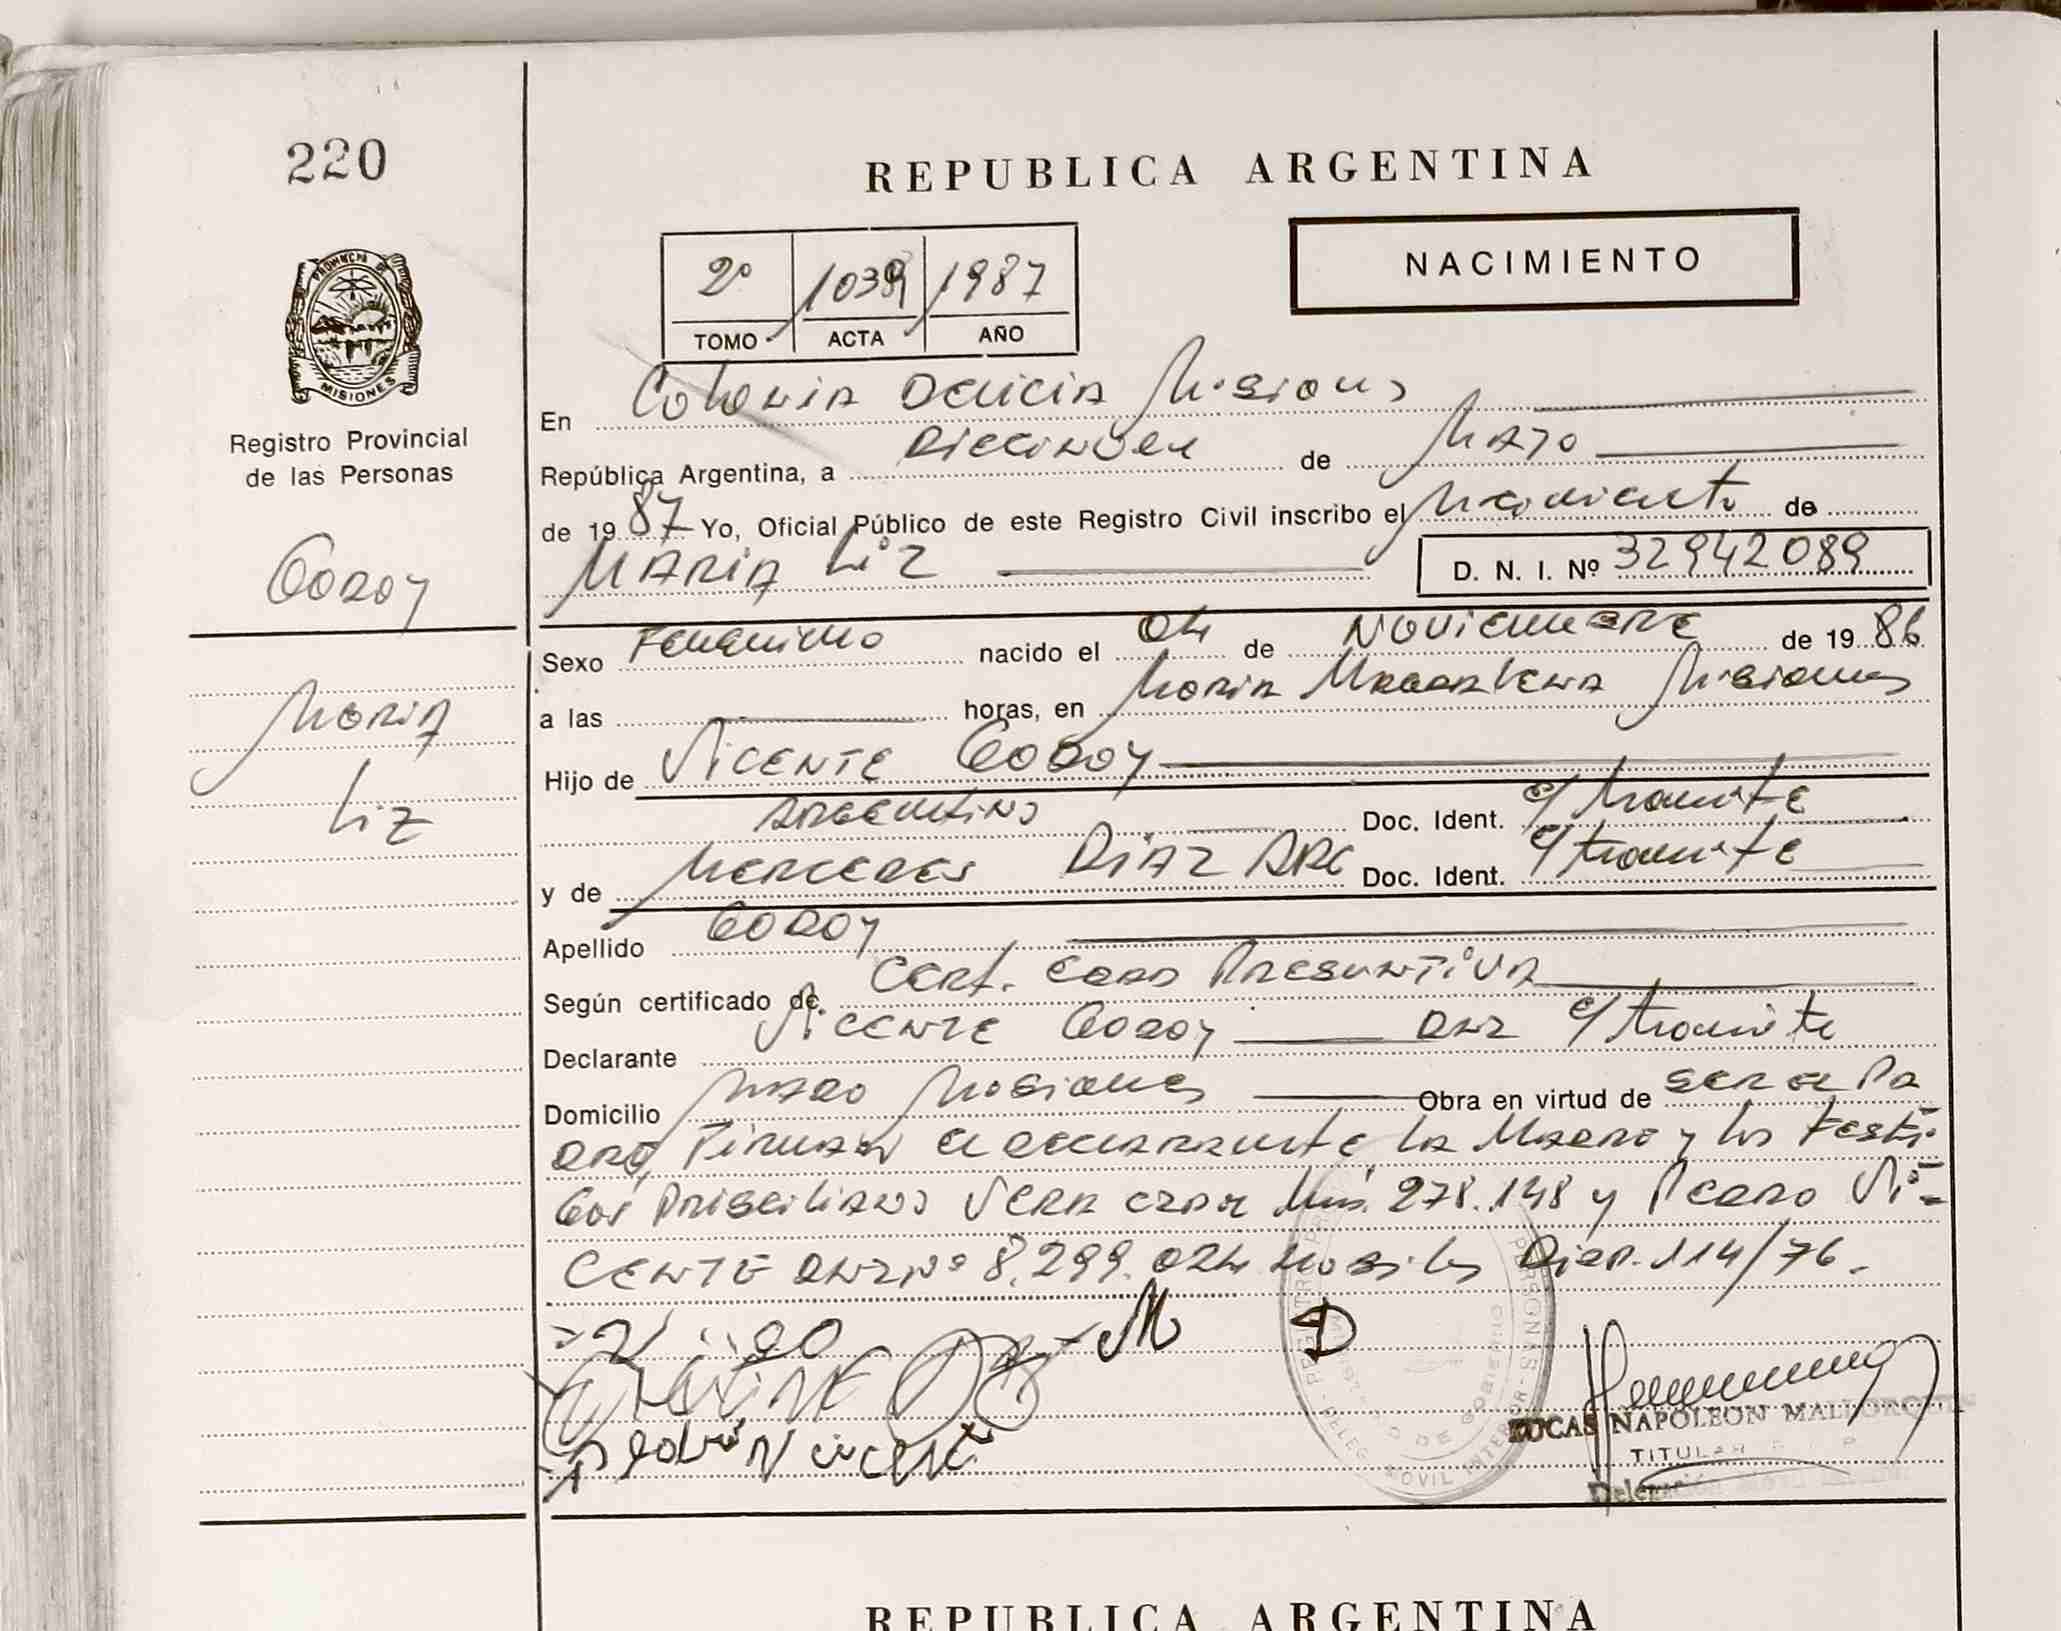 220
REPUBLICA ARGENTINA
NACIMIENTO
2º 1987
TOMO ACTA AÑO
PROVINCIA DE
MISIONES
Registro Provincial
de las Personas
Godoy
Maria
Liz
En Colonia Delicia Misiones
República Argentina, a Diecinueve de Mayo
de 1987 Yo, Oficial Público de este Registro Civil inscribo el Nacimiento de
MARIA Liz D. N. I. Nº 32942089
Sexo Femenino nacido el 04 de NOVIEMBRE de 1986
a las horas, en Maria Magdalena Misiones
Hijo de VICENTE GODOY
ARGENTINO Doc. Ident. e/tramite
y de MERCEDES DIAZ ARG Doc. Ident. e/tramite
Apellido GODOY
Según certificado de Cert. Edad Presuntiva
Declarante VICENTE GODOY DNI e/tramite
Domicilio Misiones Obra en virtud de ser el Pa
dre, Firman el declarante la Madre y los testi-
gos Prisciliano Vera 278.148 y Pedro Vi-
CENTE DNI Nº 8.299.024 Disp. 114/76.
M D
Pedro Vicente
LUCAS NAPOLEON MALLORQUIN
TITULAR
Delegación Movil
DELEG. MOVIL INTERIOR